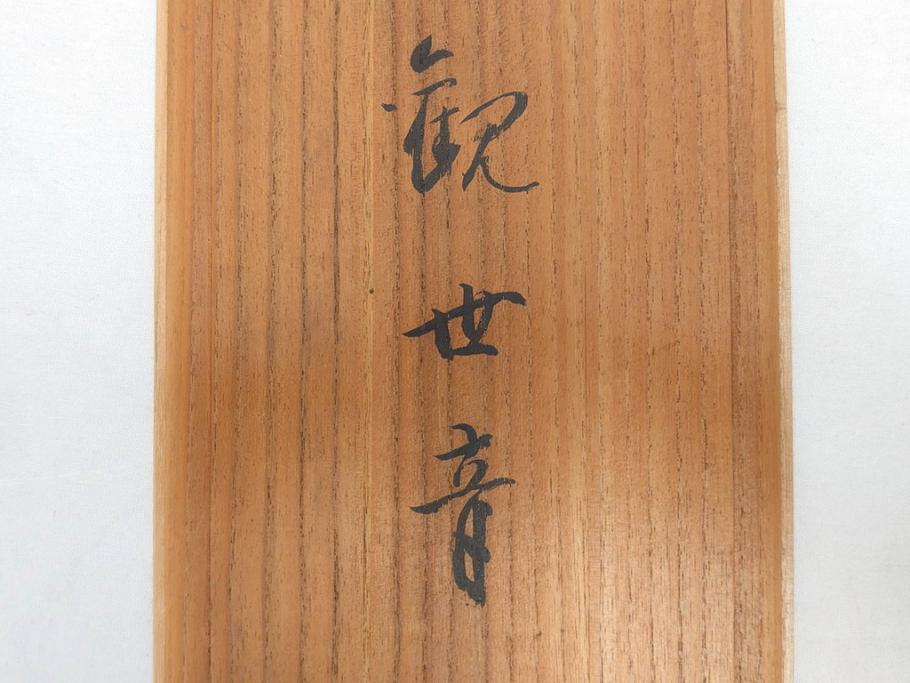 観世音